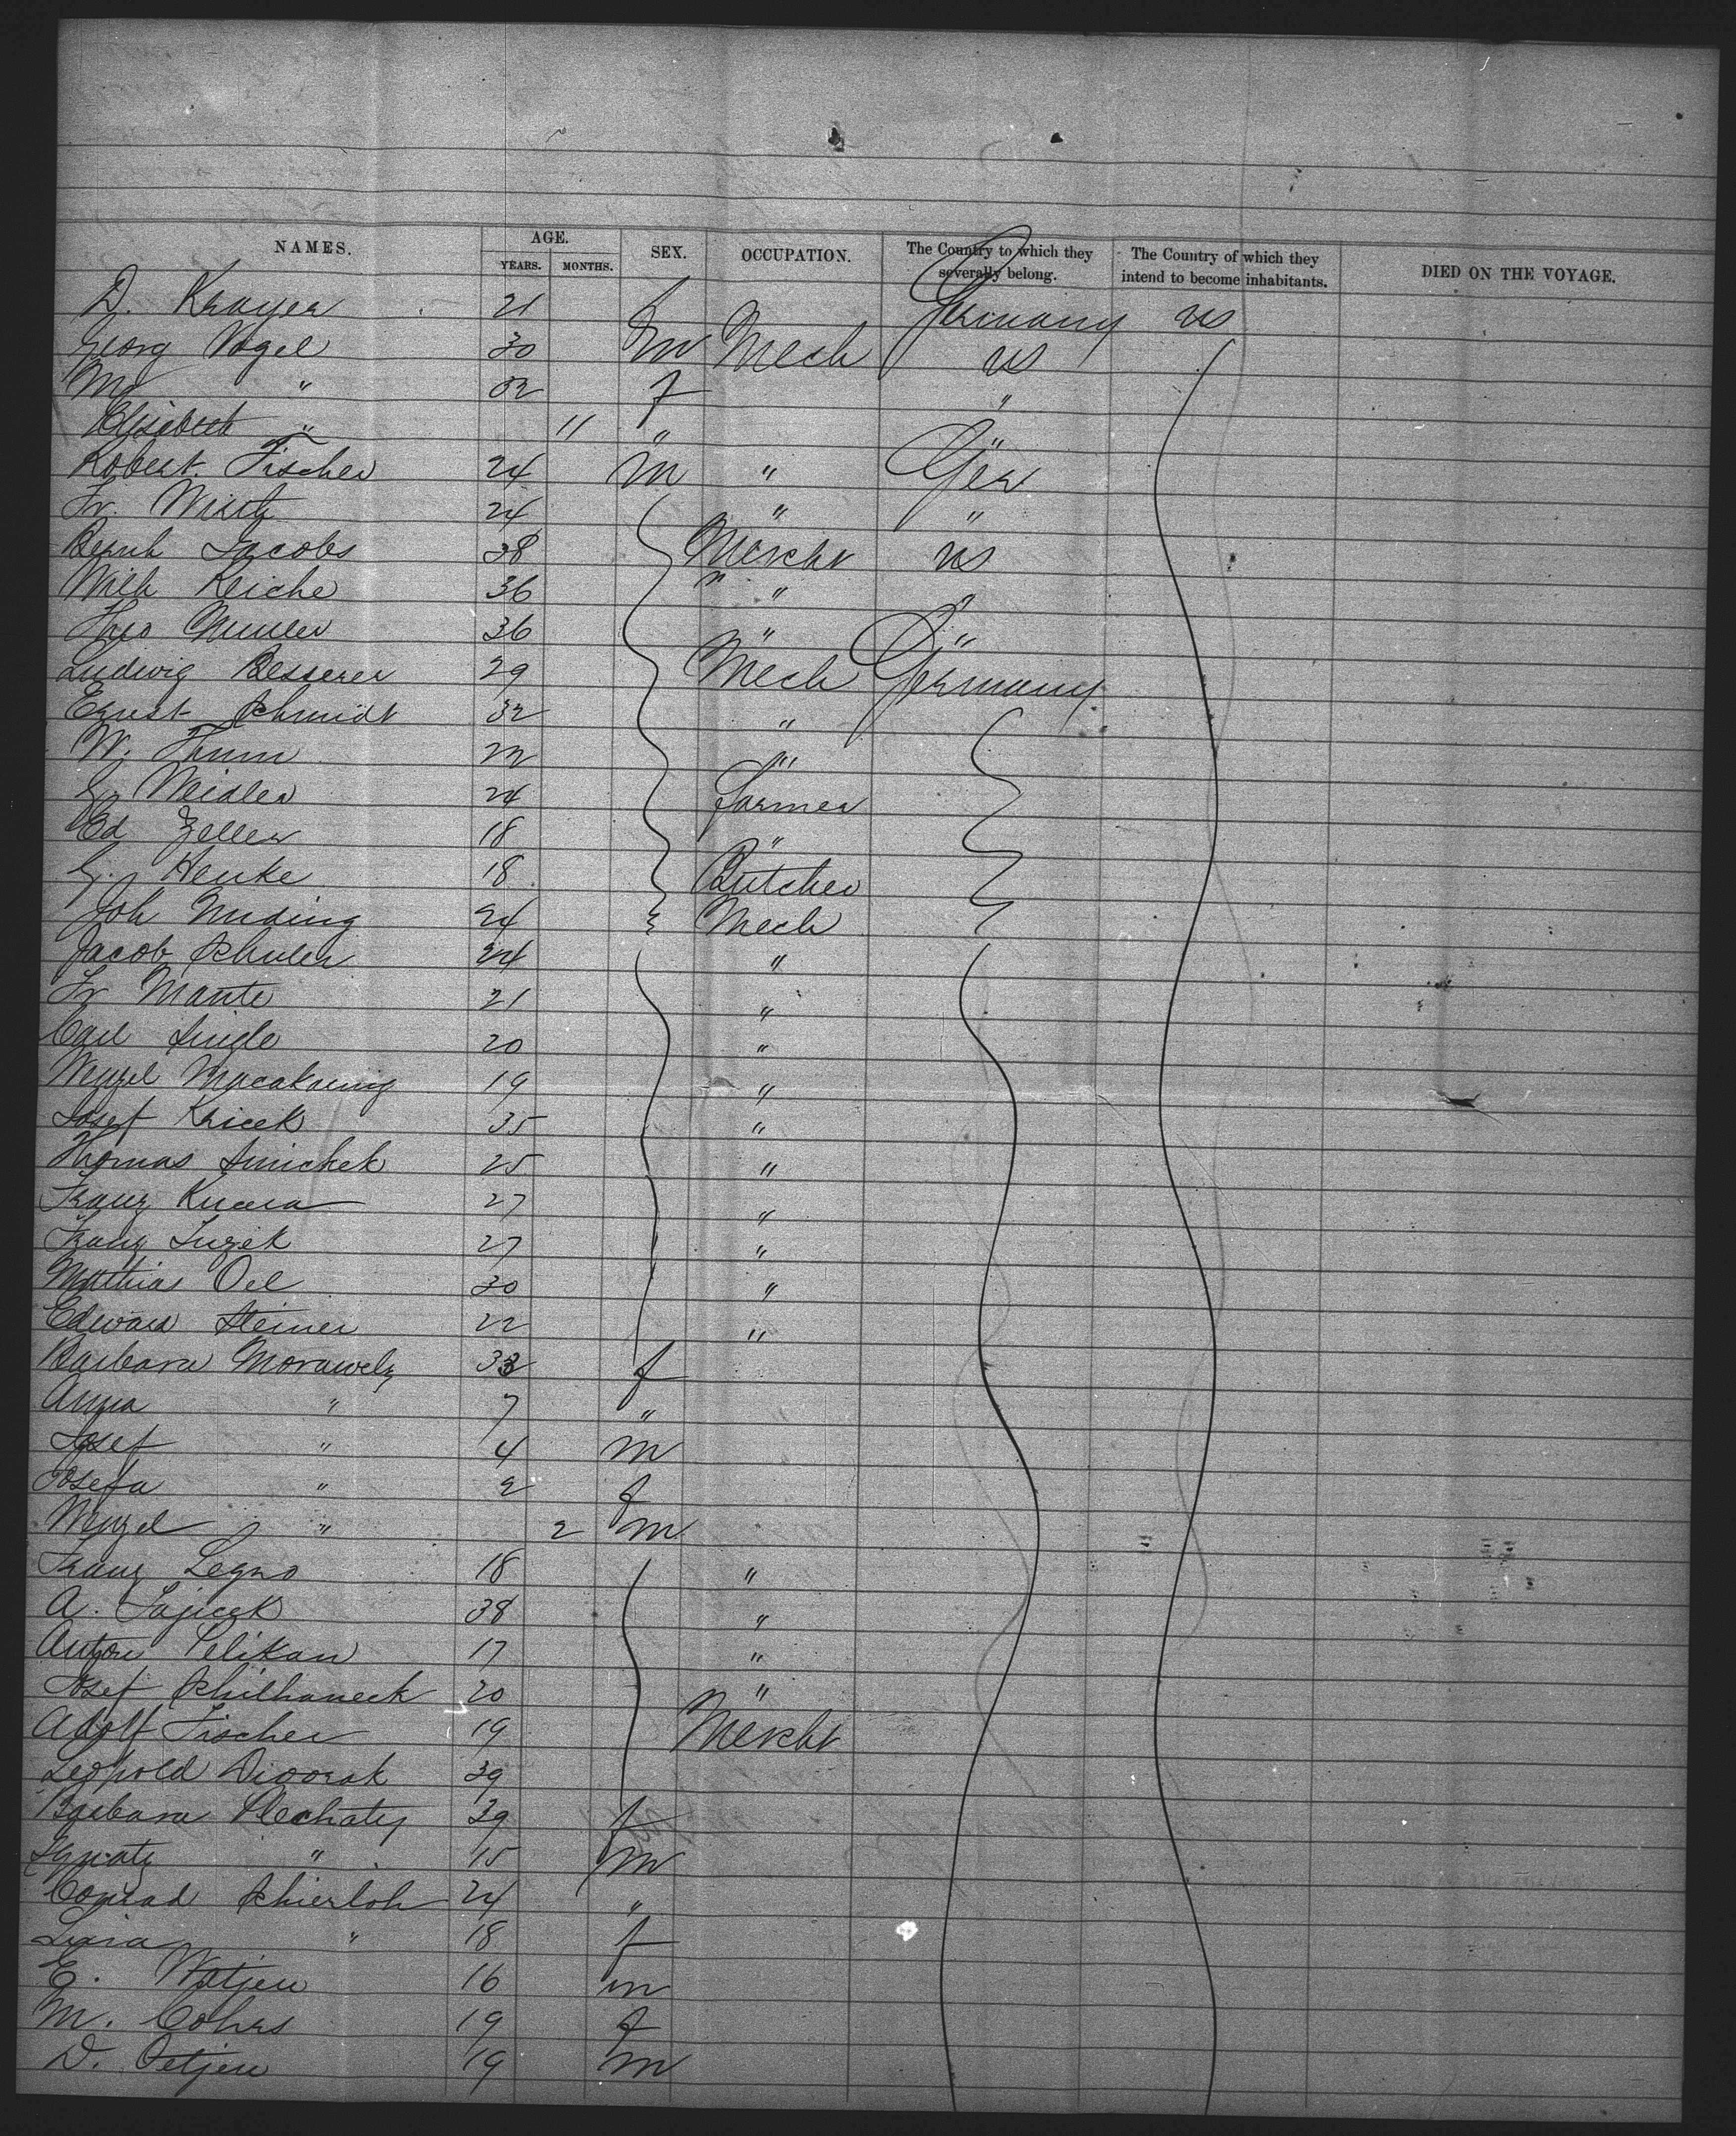 NAMES. AGE. YEARS. MONTHS. SEX. OCCUPATION. The Country to which they severally belong. The Country of which they intend to become inhabitants. DIED ON THE VOYAGE.
D. Krayer 21 Germany us
Georg Vogel 30 m Mech us
M " 32 f "
Elisabeth " 11 " "
Robert Fischer 24 m " Ger
Fr. 24 " "
Bernh Jacobs 38 Mercht us
Wilh Reiche 36 " "
Theo Muller 36 " "
Ludwig Besserer 29 Mech Germany
Ernst Schmidt 32 "
W. Thum 22 "
G. Weidler 24 Farmer
Ed Zeller 18 "
G. Henke 18 Butcher
Joh Nuding 24 Mech
Jacob Schuler 24 "
Fr Mante 21 "
Carl 20 "
Wenzel 19 "
Josef Kricek 35 "
Thomas 25 "
Franz Kucera 27 "
Franz 27 "
Matthias Oel 30 "
Edward Steiner 22 "
Barbara Morawetz 33 f
Anna " 7 "
Josef " 4 m
Josefa " 2 f
Wenzel " 2 m
Franz Legno 18 "
A. 38 "
Anton Pelikan 17 "
Josef Schilhaneck 20 "
Adolf Fischer 19 Mercht
Leopold Divorak 39
Barbara Plechaty 39 f
Ignatz " 15 m
Conrad Schierloh 24 "
" 18 f
E. Watjen 16 m
M. Cohrs 19 f
D. Oetjen 19 m